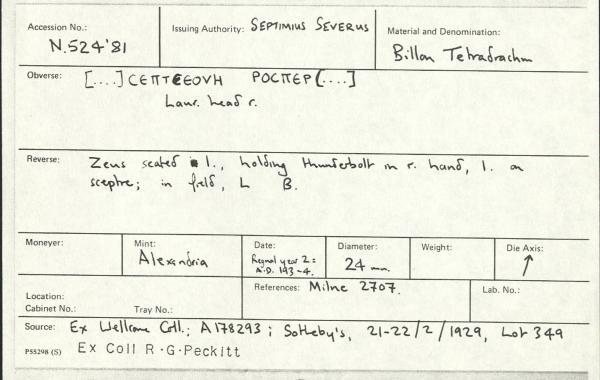 Accession No.: N.524'81
Issuing Authority: SEPTIMIUS SEVERUS
Material and Denomination: Billon Tetradrachm
Obverse: [....]CЕΠΤЄЄΟVΗ ΡΟCΠΕΡ[....]
Laur. head r.
Reverse: Zeus seated l., holding thunderbolt in r. hand, l. on
sceptre; in field, L B.
Moneyer:
Mint: Alexandria
Date: Regnal year 2:
A.D. 193-4.
Diameter: 24 mm.
Weight:
Die Axis: ↑
Location:
Cabinet No.: Tray No.:
References: Milne 2707.
Lab. No.:
Source: Ex Wellcome Coll.; A178293; Sotheby's, 21-22/2/1929, Lot 349
P55298 (S) Ex Coll R.G.Peckitt